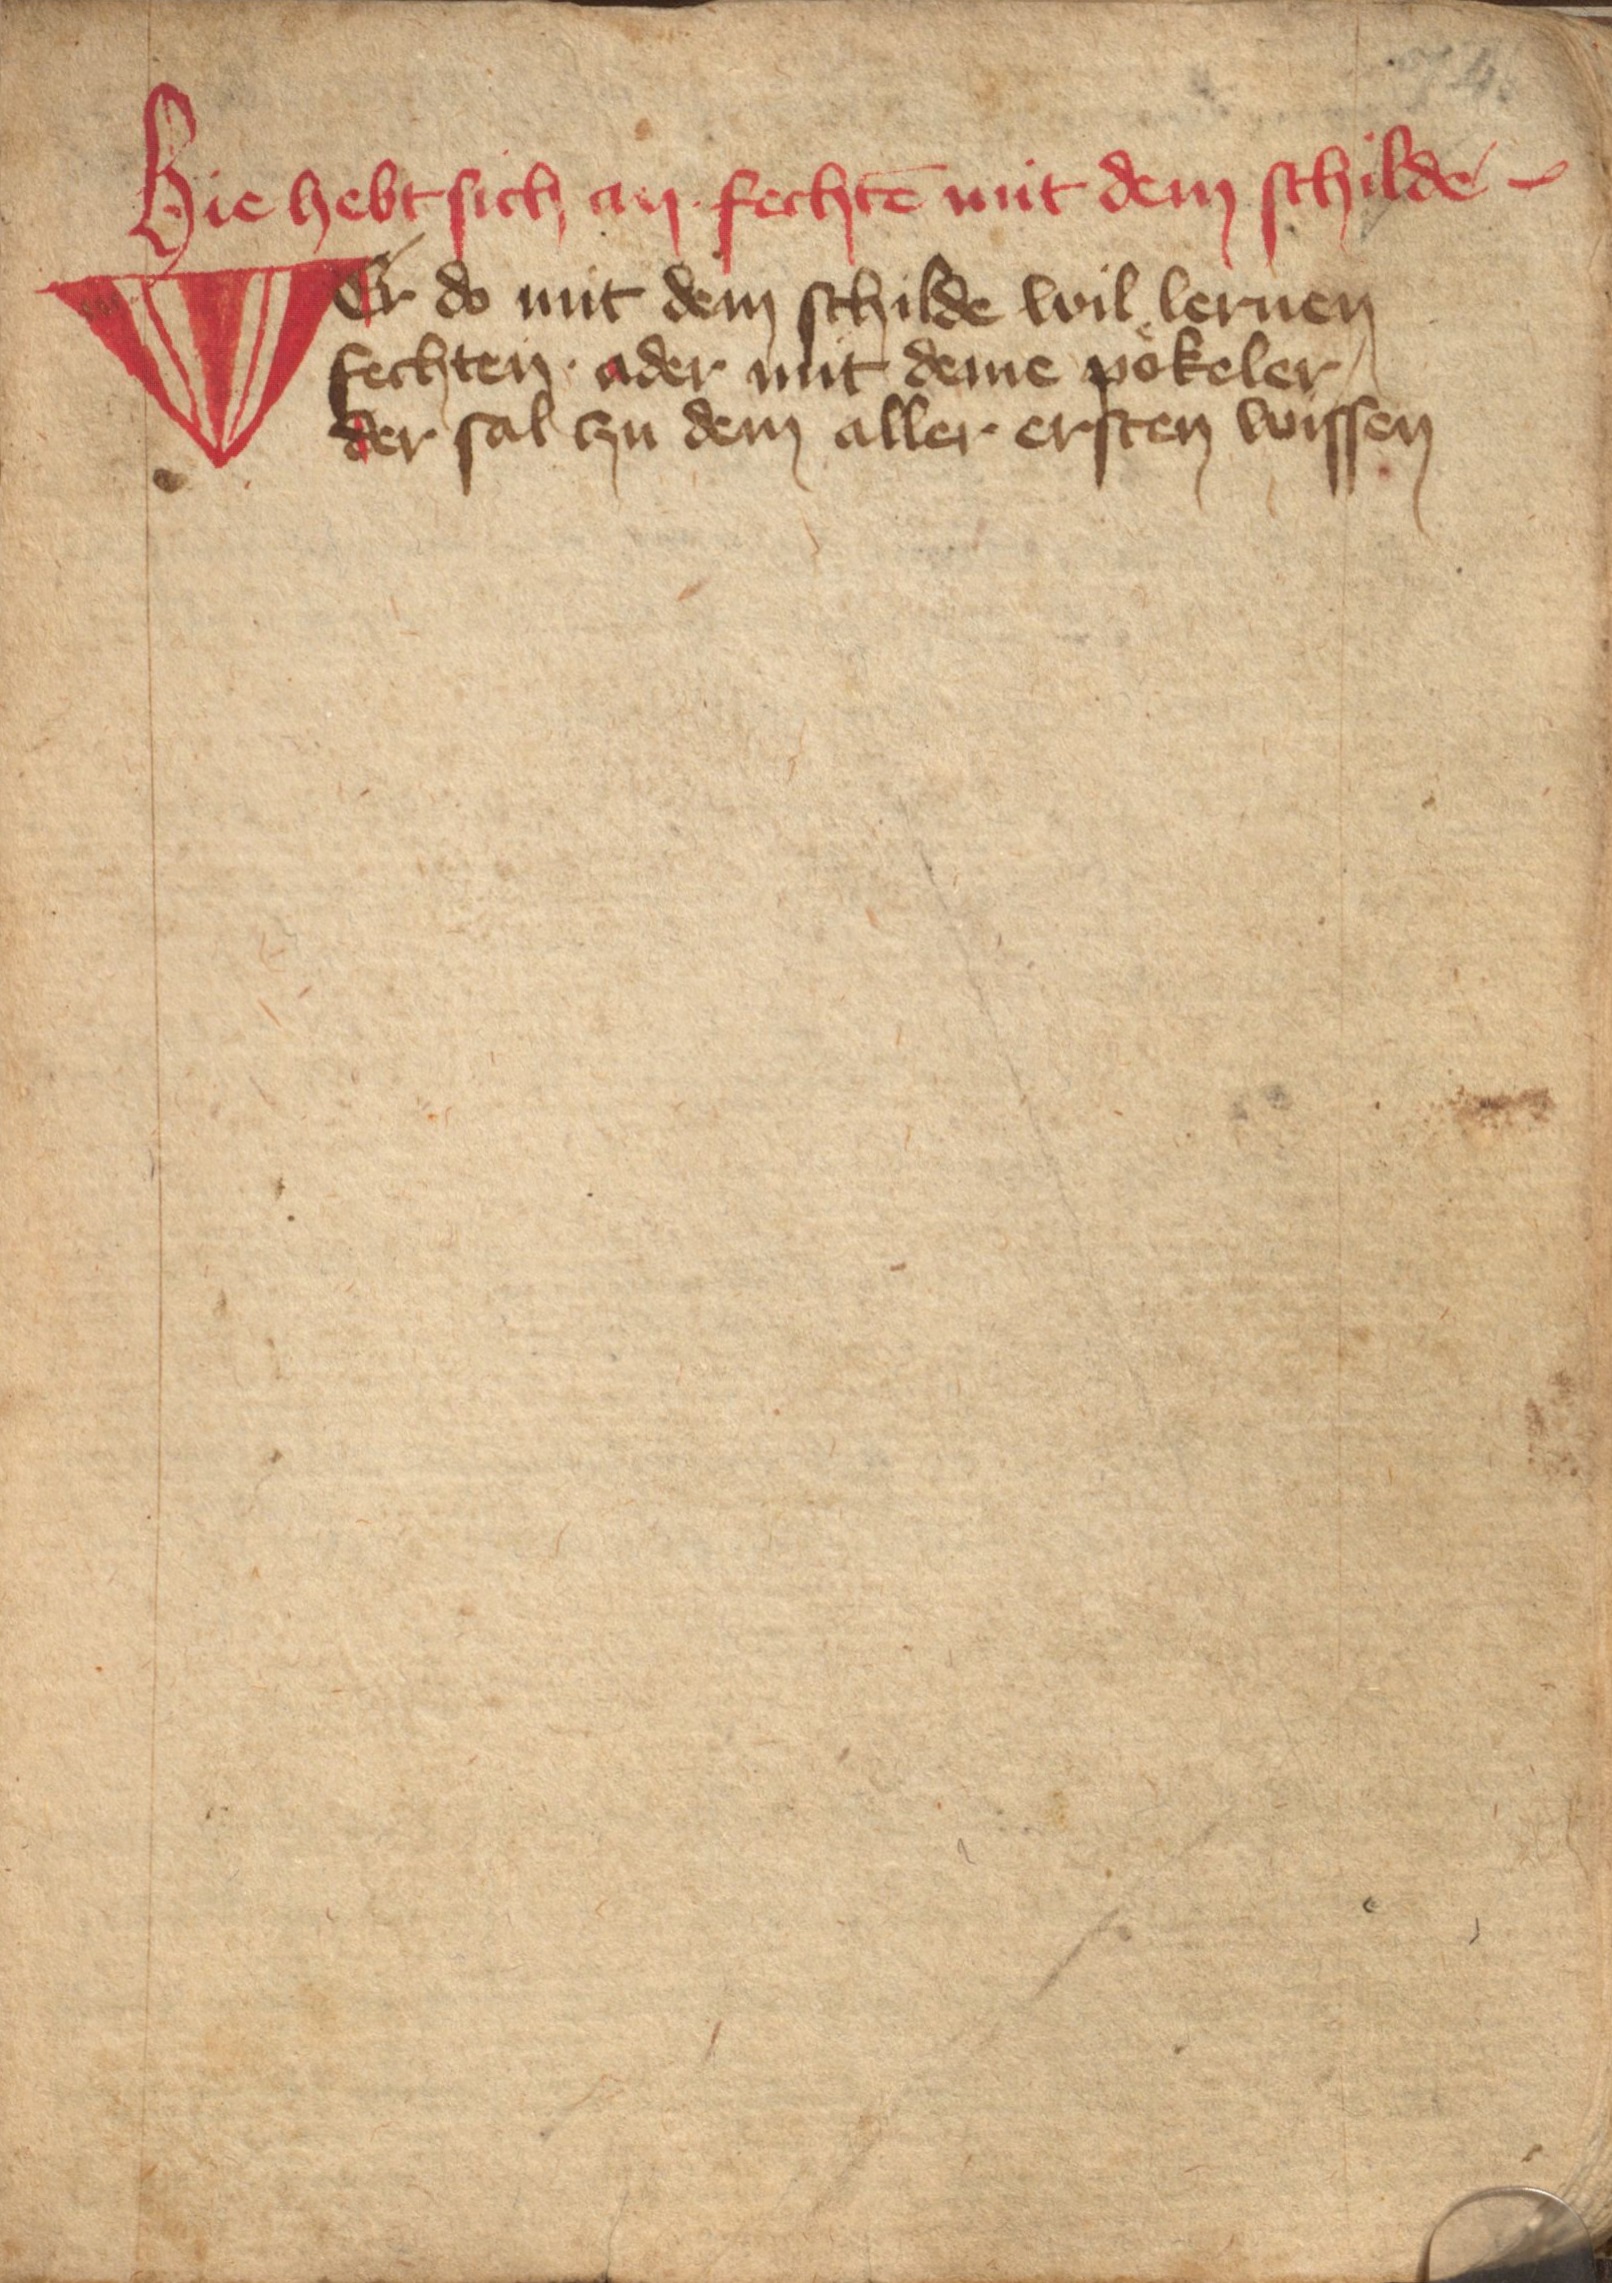 74.
Hie hebt sich an fechtē mit dem schilde
WEr do mit dem schilde wil lernen
fechten · ader mit deme pökeler /
der sal czu dem aller ersten wissen